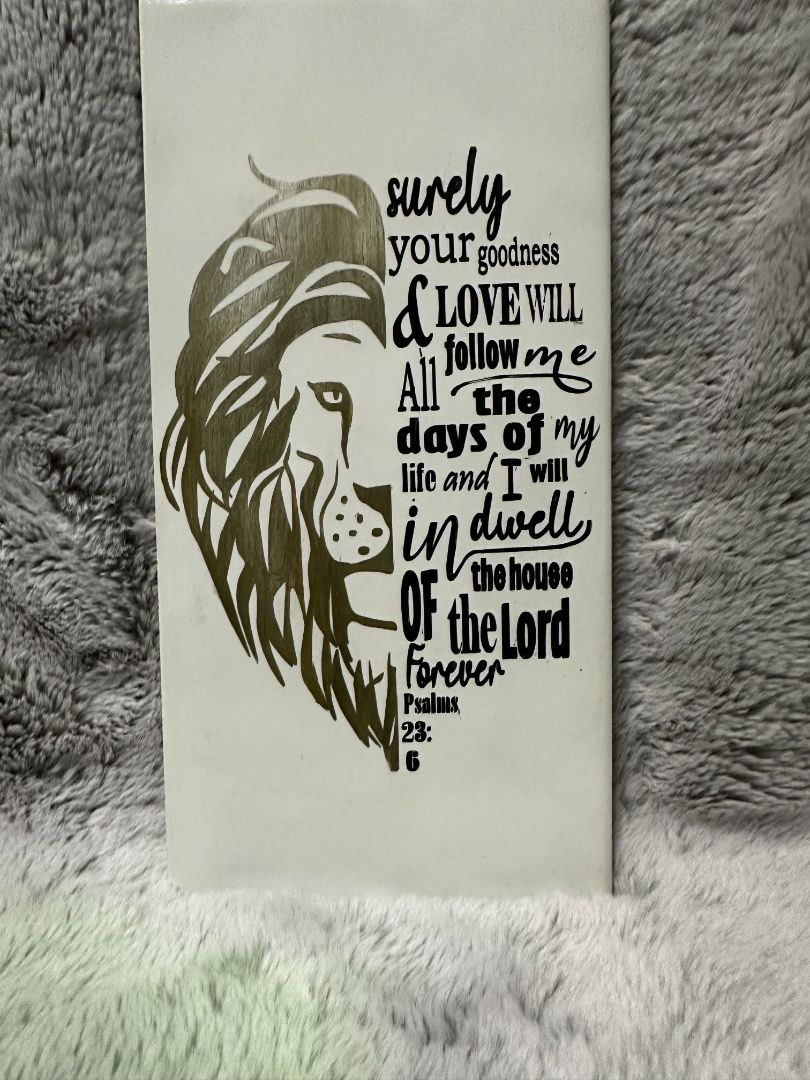 surely
your goodness
& LOVE WILL
follow me
All the
days of my
life and I will
in dwell
the house
OF the Lord
Forever
Psalms
23:
6